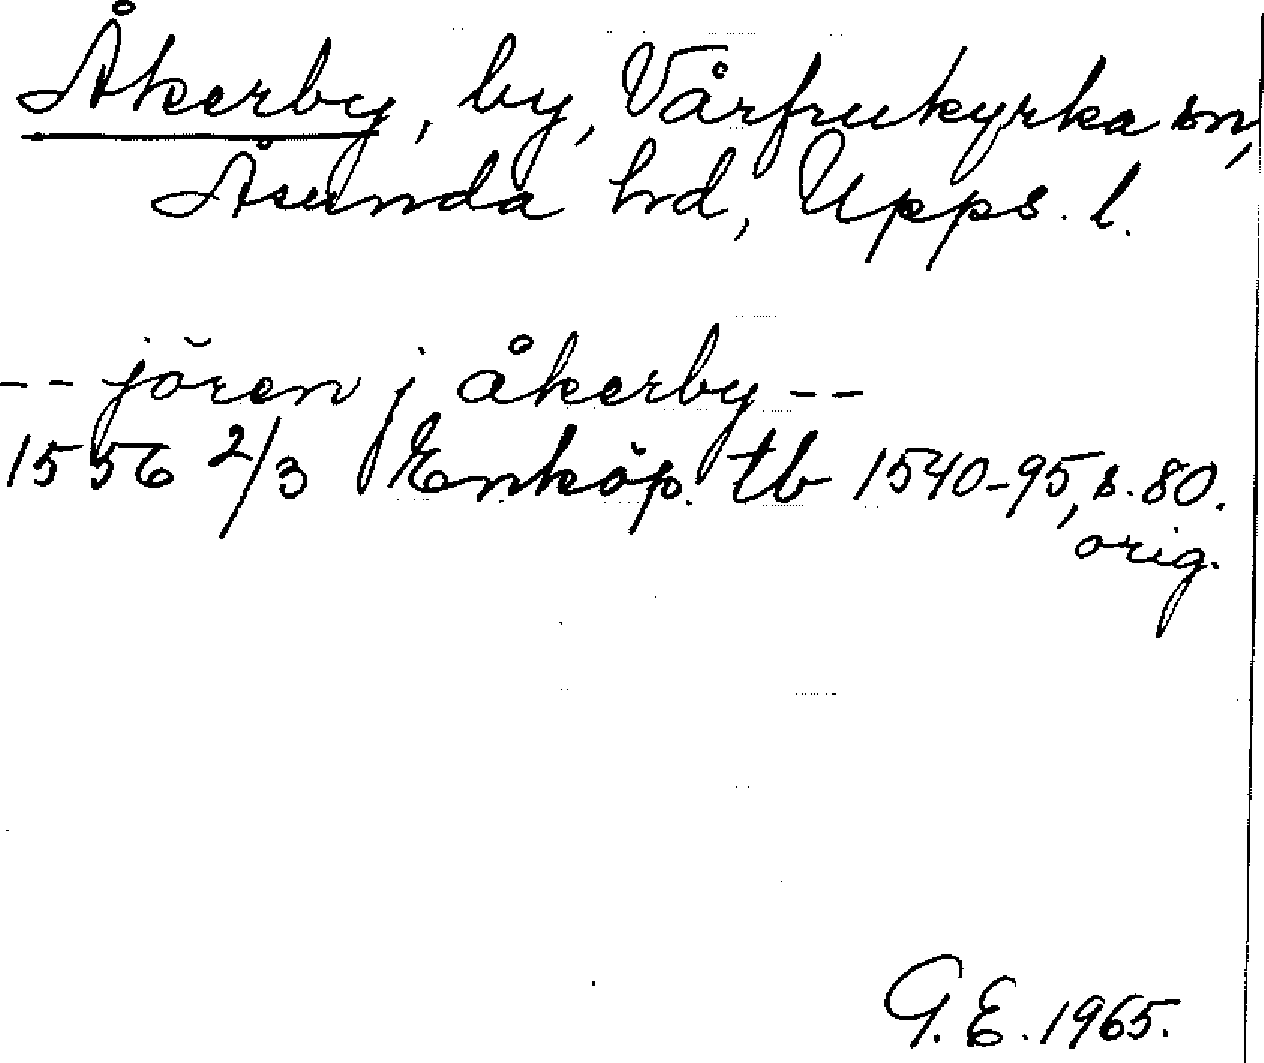 Åkerby, by, Vårfrukyrka sn,
Åsunda hd, Upps. l.
-- jören j åkerby --
1556 2/3 Enköp. tb 1540-95, s. 80.
orig.
G. E. 1965.